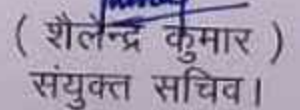 ( शैलेन्द्र कुमार )
संयुक्त सचिव।